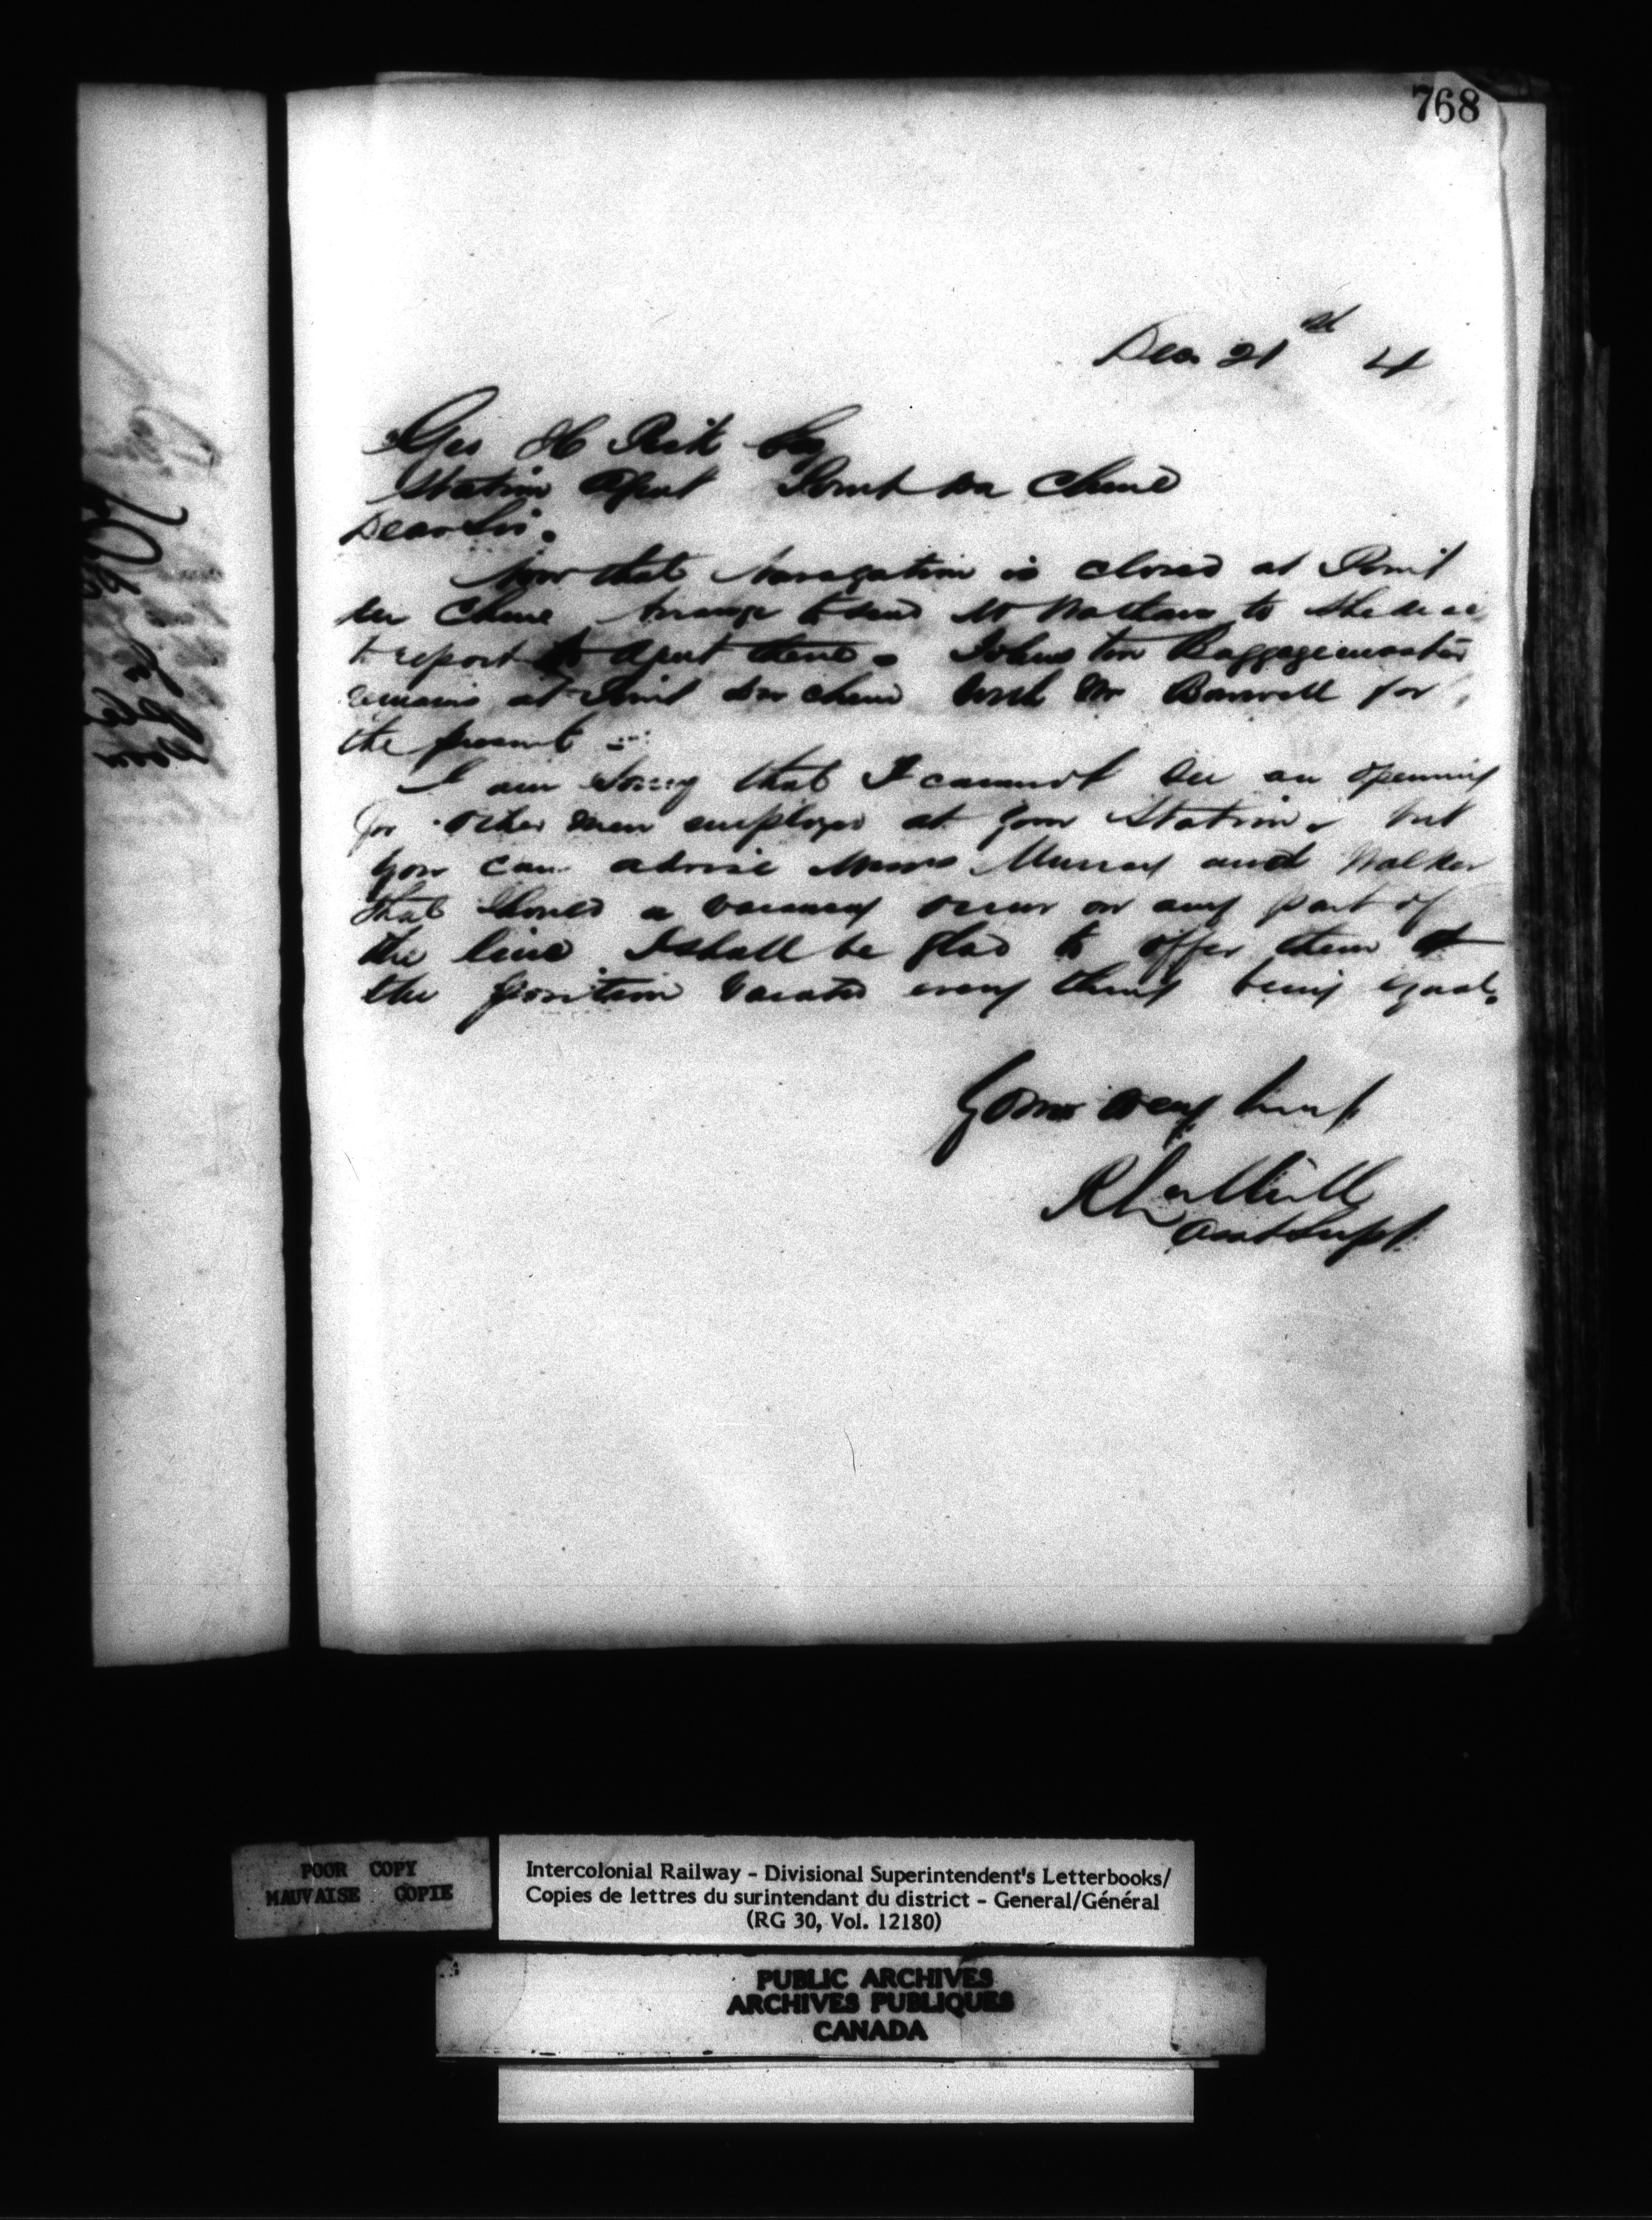 768
Dec 21st 4
Geo H Pick Esq
Station Agent Point du Chene
Dear Sir.
Now that Navagation is closed at Point
du Chene Arrange to send to Shediac
to report to Agent there. Johnston Baggagemaster
remains at Point du Chene with Mr Barnwell for
the present
I am sorry that I cannot see an opening
for other men employed at your Station, but
you can advise Messrs Murray and Walker
that should a vacancy occur on any part of
the line I shall be glad to offer them
the position vacated every thing being equal.
Yours very truly
Asst Supt
POOR COPY
MAUVAISE COPIE
Intercolonial Railway - Divisional Superintendent's Letterbooks/
Copies de lettres du surintendant du district - General/Général
(RG 30, Vol. 12180)
PUBLIC ARCHIVES
ARCHIVES PUBLIQUES
CANADA